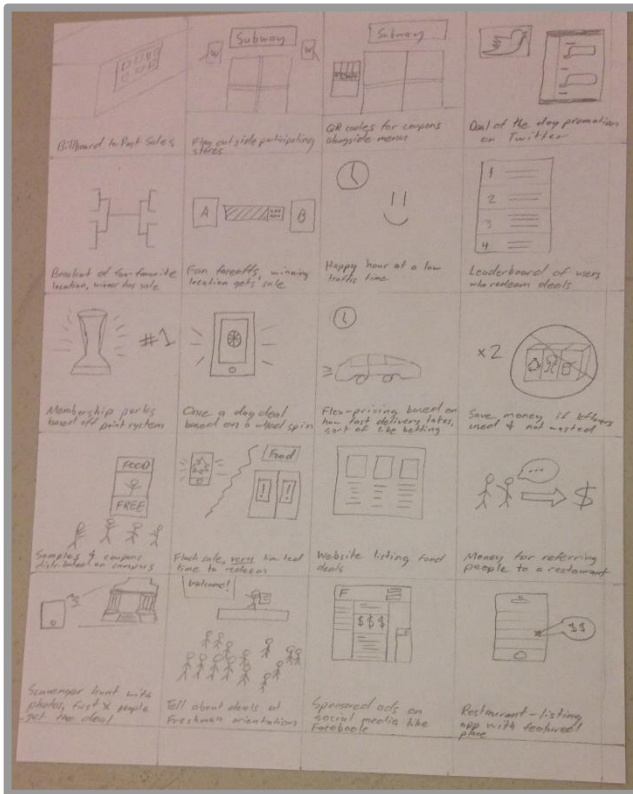 Billboard to Post Sales
W
Subway
W
Flag outside participating
stores
Subway
QR codes for coupons
alongside menus
Deal of the day promotion
on Twitter
Bracket of fan-favorite
location, winner has sale
A
B
Fan faceoffs, winning
location gets sale
Happy hour at a low
traffic time
1
2
3
4
Leaderboard of users
who redeem deals
#1
Membership perks
based off point system
Once a day deal
based on a wheel spin
Flex-pricing based on
how fast delivery takes,
sort of like betting
x2
Save money if leftovers
used & not wasted
FOOD
FREE
Samples & coupons
distributed on campus
Food
! !
Flash sale, very limited
time to redeem
Website listing food
deals
...
$
Money for referring
people to a restaurant
Scavenger hunt with
photos, first X people
get the deal
Welcome!
Tell about deals at
Freshman orientation
F
$$$
Sponsored ads on
social media like
Facebook
$$
Restaurant-listing
app with featured
place